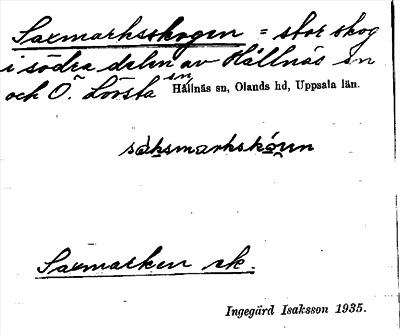 Saxmarksskogen = stor skog
i södra delen av Hållnäs sn
och Ö. Lövsta sn
Hållnäs sn, Olands hd, Uppsala län.
sàksmarkskó̩u̩n
Saxmarken ek.
Ingegärd Isaksson 1935.